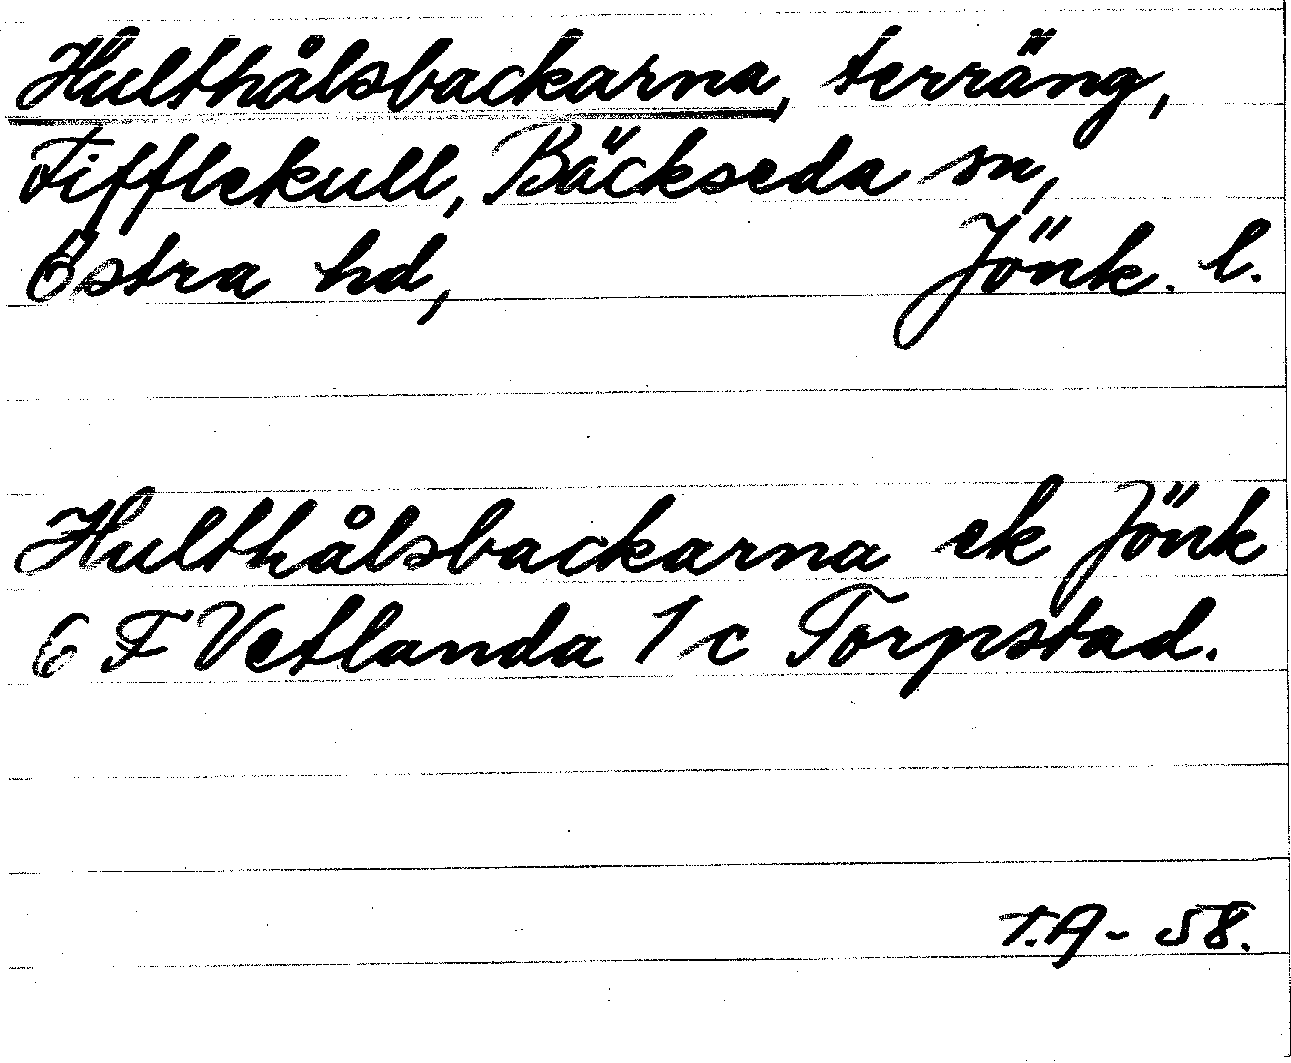 Hulthålsbackarna, terräng,
Fifflekull, Bäckseda sn,
Östra hd, Jönk. l.
Hulthålsbackarna ek Jönk
6 F Vetlanda 1 c Torpstad.
T.A - 58.